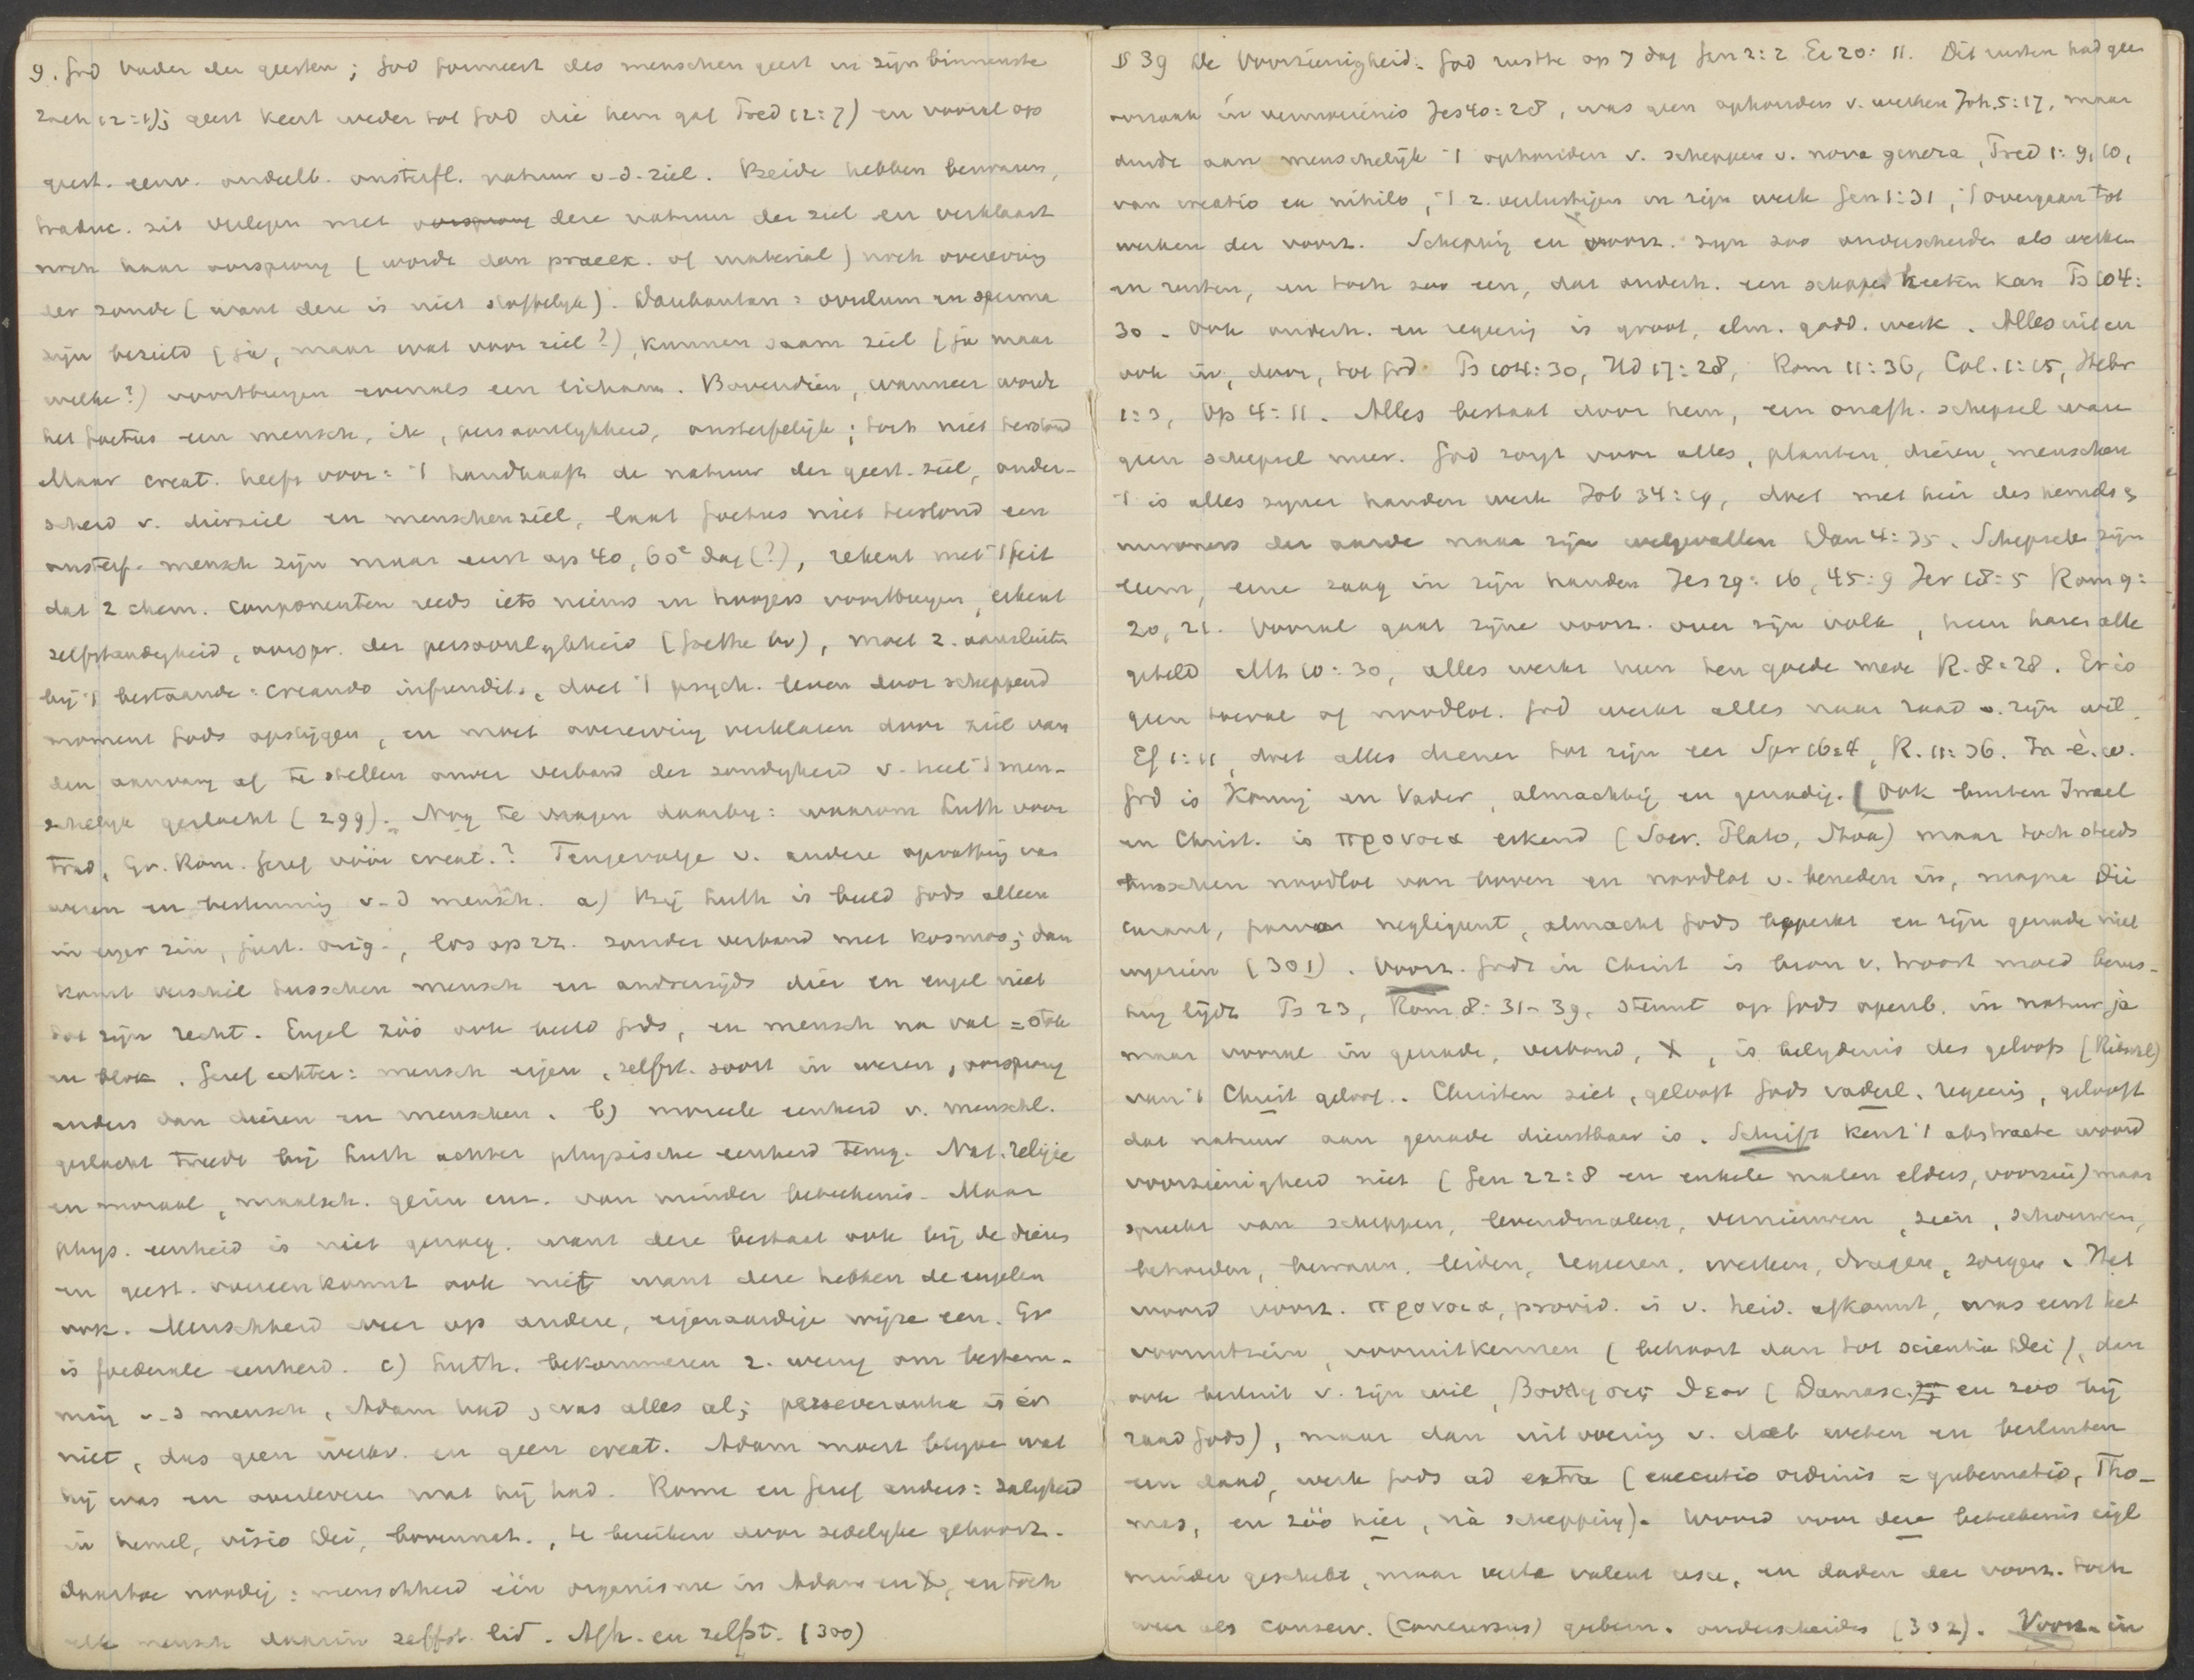 9. God Vader der geesten; God formeert des menschen geest in zijn binnenste
Zach 12:1); geest keert weder tot God die hem gaf Pred 12:7) en vooral op
geest. eenv. ondeelb. onsterfl. natuur v.d. ziel. Beide hebben bezwaren,
traduc. zit verlegen met deze natuur der ziel en verklaart
noch haar oorsprong (wordt dan praeex. of material) noch overerving
der zonde (want deze is niet stoffelijk). Daubanton: ovulum en sperma
zijn bezield (ja, maar wat voor ziel?), kunnen saam ziel (ja maar
welke?) voortbrengen evenals een lichaam. Bovendien, wanneer wordt
het foetus een mensch, ik, persoonlijkheid, onsterfelijk; toch niet terstond
Maar creat. heeft voor: 't handhaaft de natuur der geest. ziel, onder-
scheid v. dierziel en menschenziel, laat foetus niet terstond een
onsterf. mensch zijn maar eerst op 40, 60e dag (?), rekent met 't feit
dat 2 chem. componenten reeds iets nieuws en hoogers voortbrengen, erkent
zelfstandigheid, oorspr. der persoonlijkheid (Goethe bv), moet z. aansluiten
bij 't bestaande: creando infundit, doet 't psych. leven door scheppend
moment Gods opstijgen, en moet overerving verklaren door ziel van
den aanvang af te stellen onder verband der zondigheid v. heel 't men-
schelijk geslacht (299). Nog te vragen daarbij: waarom Luth voor
trad, Gr. Rom. Geref vóór creat.? Tengevolge v. andere opvatting van
wezen en bestemming v.d mensch. a) Bij Luth is beeld Gods alleen
in enger zin, just. orig., los op zz. zonder verband met kosmos; dan
komt verschil tusschen mensch en anderzijds dier en engel niet
tot zijn recht. Engel zóó ook beeld Gods, en mensch na val = stok
en blok. Geref echter: mensch eigen, zelfst. soort in wezen, oorsprong
anders dan dieren en menschen. b) moreele eenheid v. menschl.
geslacht treedt bij Luth achter physische eenheid terug. Nat. religie
en moraal, maatsch. gezin enz. van minder beteekenis. Maar
phys. eenheid is niet genoeg. want deze bestaat ook bij de dieren
en geest. overeenkomst ook niet want deze hebben de engelen
ook. Menschheid weer op andere, eigenaardige wijze een. Er
is foederale eenheid. c) Luth. bekommeren z. weinig om bestem-
ming v.d mensch, Adam had, was alles al; perseverantia is er
niet, dus geen werkv. en geen creat. Adam moest blijven wat
hij was en overleveren wat hij had. Rome en Geref anders: zaligheid
in hemel, visio Dei, bovennat., te bereiken door zedelijke gehoorz.
daartoe noodig: menschheid één organisme in Adam en X, en toch
elk mensch daarin zelfst. lid. Afh. en zelfst. (300)
§ 39 De Voorzienigheid. God rustte op 7 dag Gen 2:2 Ex 20:11. Dit rusten had geen
oorzaak in vermoeienis Jes 40:28, was geen ophouden v. werken Joh. 5:17, maar
duidt aan menschelijk 't ophouden v. scheppen v. nova genera, Pred 1:9, 10,
van creatio ex nihilo, 't z. verlustigen in zijn werk Gen 1:31, 't overgaan tot
werken der voorz. Schepping en voorz. zijn zoo onderscheiden als werken
en rusten, en toch zoo een, dat onderh. een scheppen heeten kan Ps 104:
30. Ook onderh. en regering is groot, alm. godd. werk. Alles uit en
ook in, door, tot God. Ps 104:30, Hd 17:28, Rom 11:36, Col. 1:15, Hebr
1:3, Op 4:11. Alles bestaat door hem, een onafh. schepsel ware
geen schepsel meer. God zorgt voor alles, planten, dieren, menschen
't is alles zijner handen werk Job 34:19, doet met heir des hemels &
inwoners der aarde naar zijn welgevallen Dan 4:35. Schepsels zijn
leem, eene zaag in zijn handen Jes 29:16, 45:9 Jer 18:5 Rom 9:
20, 21. Vooral gaat zijne voorz. over zijn volk, hun haren alle
geteld Mt 10:30, alles werkt hun ten goede mede R. 8:28. Er is
geen toeval of noodlot. God werkt alles naar raad v. zijn wil
Ef 1:11, doet alles dienen tot zijn eer Spr 16:4, R. 11:36. In é. w.
God is Koning en Vader, almachtig en genadig. (Ook buiten Israel
en Christ. is προνοια erkend (Socr. Plato, Stoa) maar toch steeds
tusschen noodlot van boven en noodlot v. beneden in, magna Dii
curant, parva negligunt, almacht Gods beperkt en zijn genade niet
ingezien (301). Voorz. Gods in Christ is bron v. troost moed berus-
ting lijdz Ps 23, Rom 8:31-39. steunt op Gods openb. in natuur ja
maar vooral in genade, verbond, X, is belijdenis des geloofs (Ritschl)
van 't Christ geloof. Christen ziet, gelooft Gods vaderl. regeering, gelooft
dat natuur aan genade dienstbaar is. Schrift kent 't abstracte woord
voorzienigheid niet (Gen 22:8 en enkele malen elders, voorzien) maar
spreekt van scheppen, levendmaken, vernieuwen, zien, schouwen,
behoeden, bewaren, leiden, regeeren, werken, dragen, zorgen. Het
woord voorz. προνοια, provid. is v. heid. afkomst, was eerst het
vooruitzien, vooruitkennen (behoort dan tot scientia Dei), dan
ook besluit v. zijn wil, βουλησις θεου (Damasc. en zoo bij
raad Gods), maar dan uitvoering v. dat weten en besluiten
een daad, werk Gods ad extra (executio ordinis = gubernatio, Tho-
mas, en zóó hier, ná schepping). Woord voor deze beteekenis eigl
minder geschikt, maar verba valent usu, en daden der voorz. toch
weer als conserv. (concursus) gubern. onderscheiden (302). Voorz. in